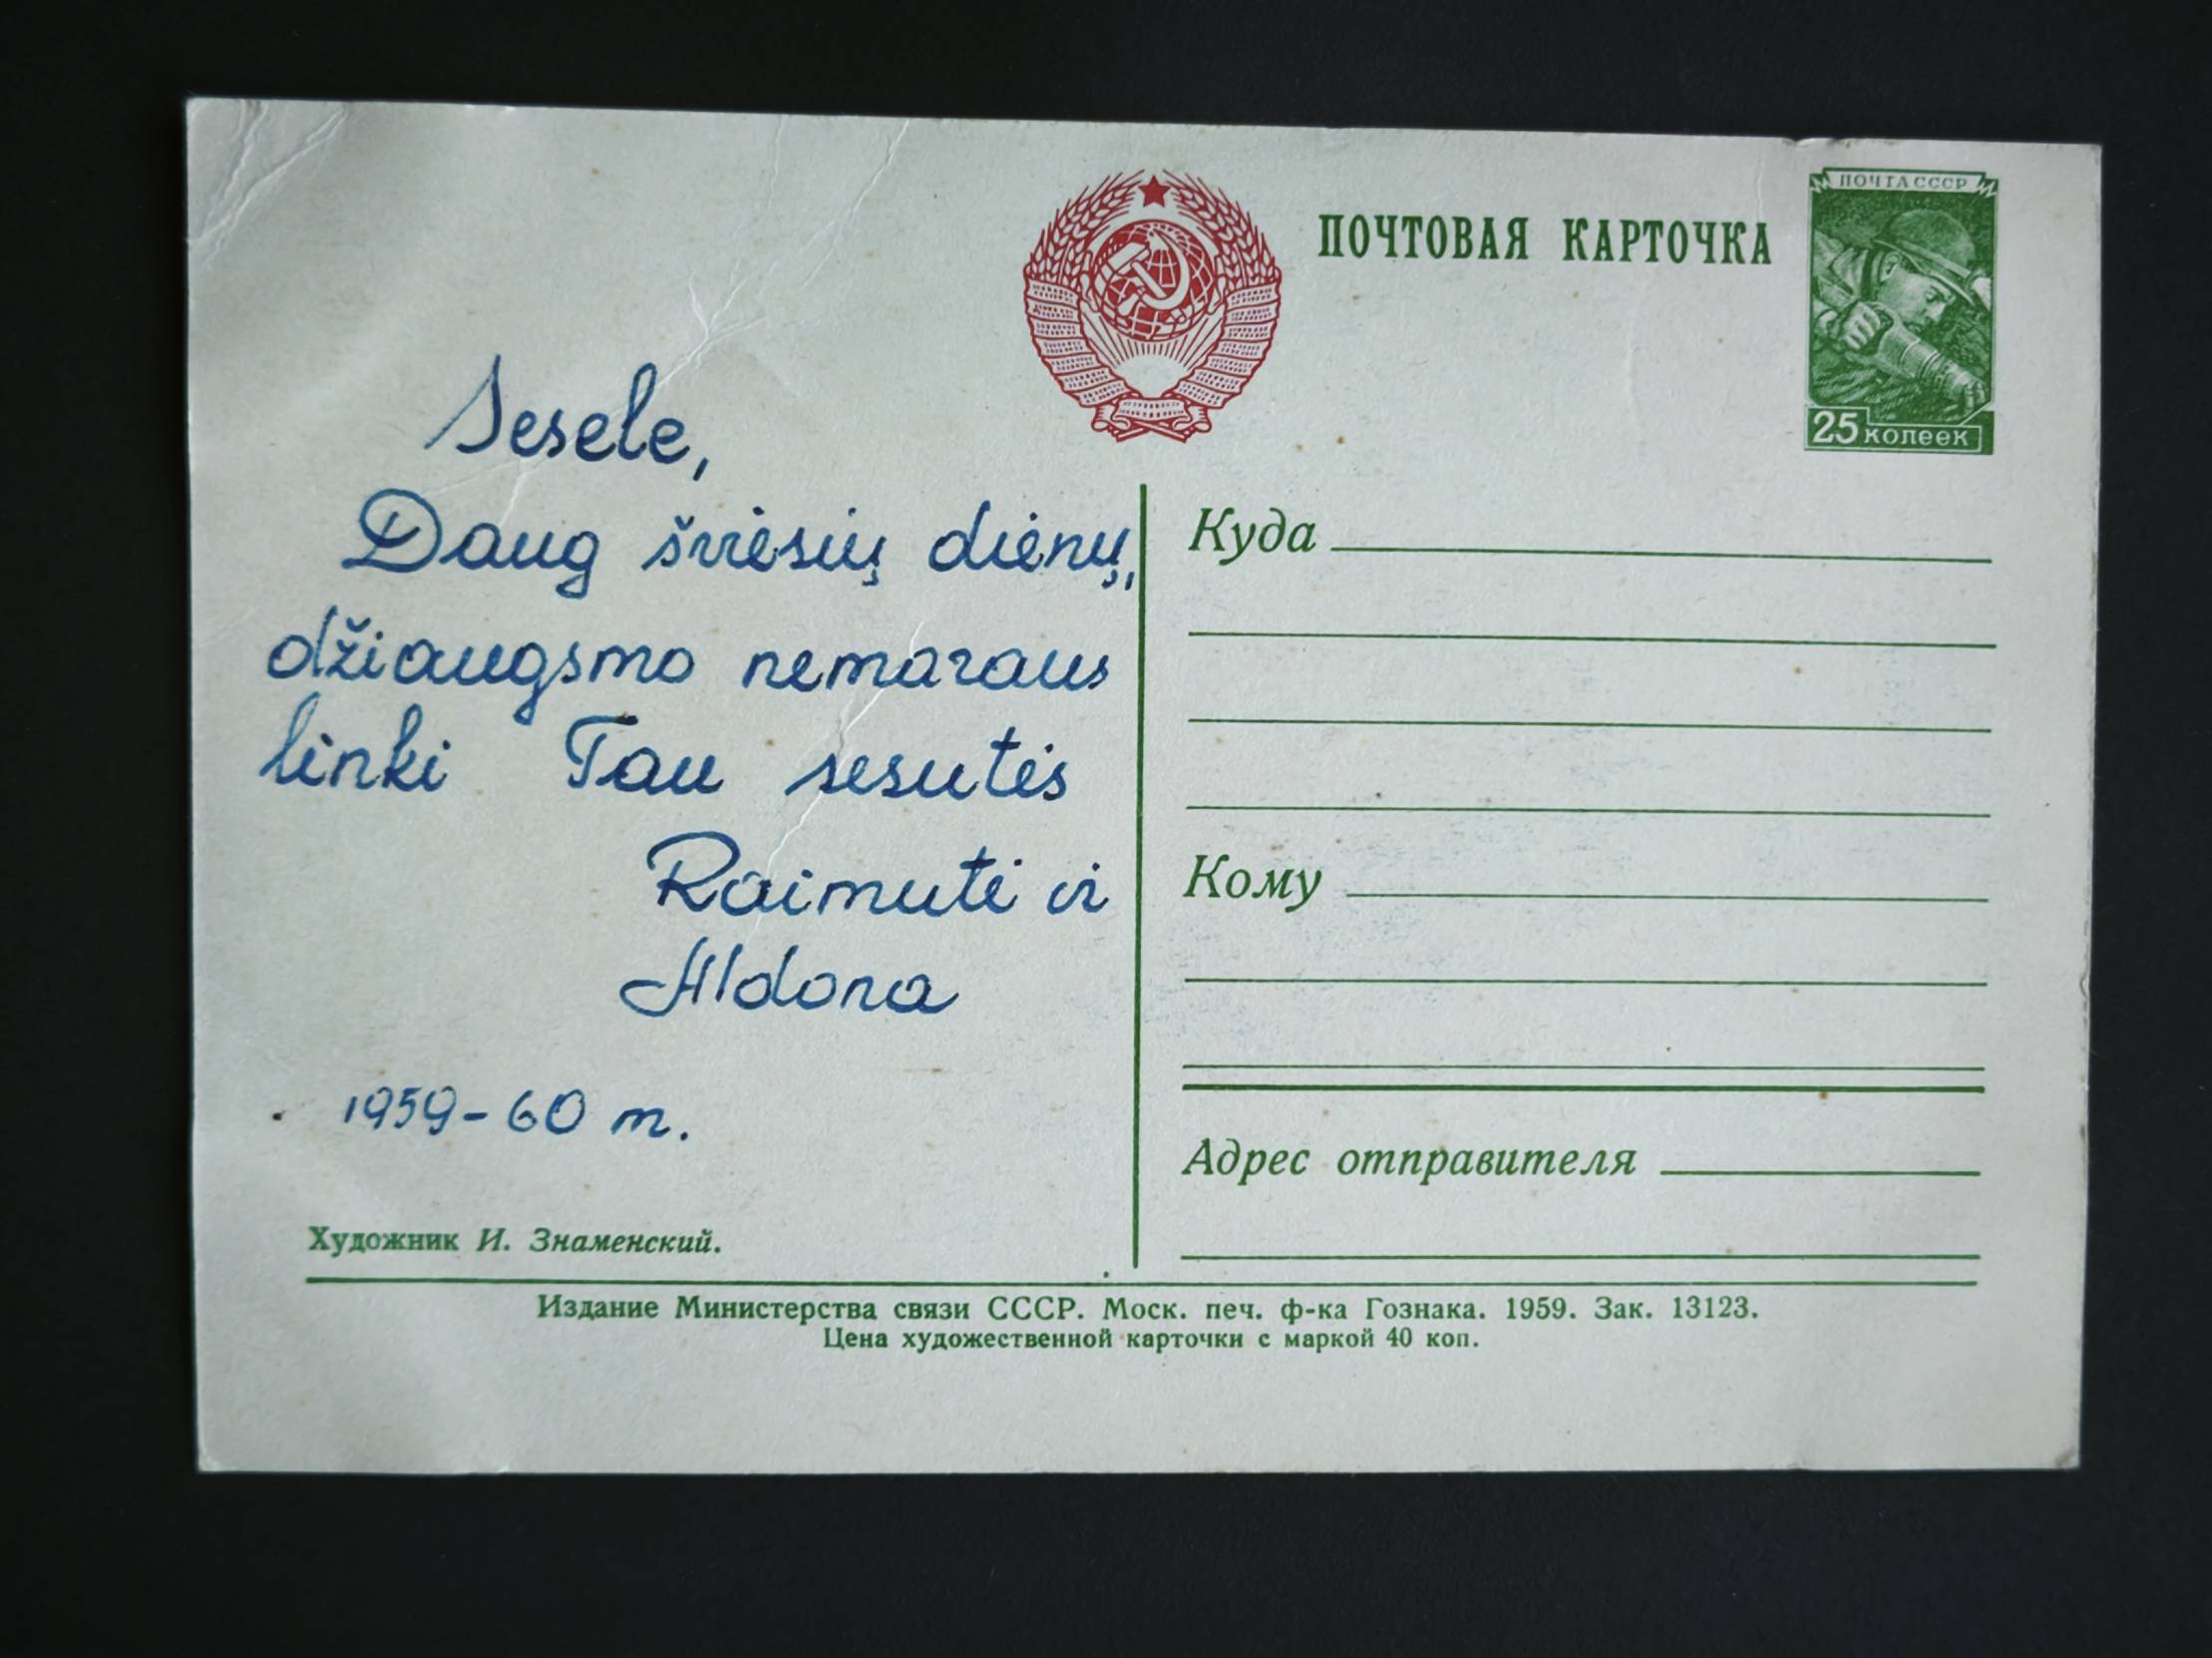 ПОЧТОВАЯ КАРТОЧКА
ПОЧТА СССР
25 копеек
Sesele,
Daug šviesių dienų,
džiaugsmo nemaraus
linki Tau sesutės
Raimutė ir
Aldona
1959-60 m.
Куда
Кому
Адрес отправителя
Художник И. Знаменский.
Издание Министерства связи СССР. Моск. печ. ф-ка Гознака. 1959. Зак. 13123.
Цена художественной карточки с маркой 40 коп.